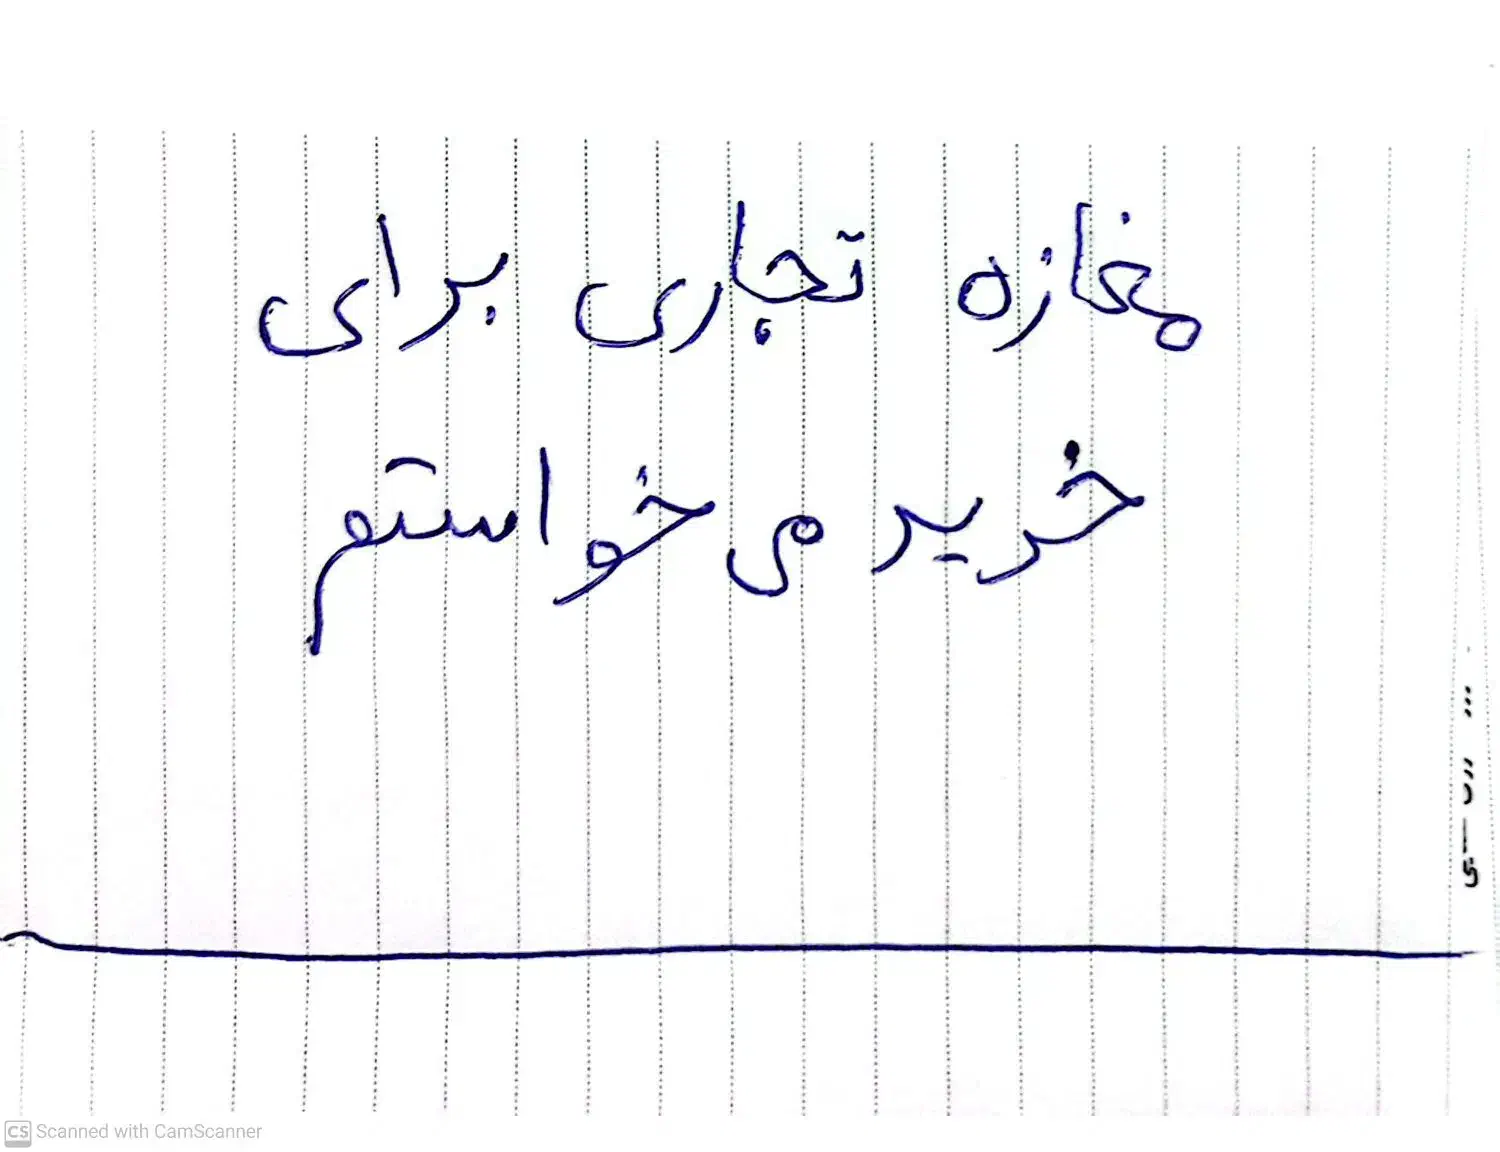 مغازه تجاری برای
خرید می خواستم
CS Scanned with CamScanner